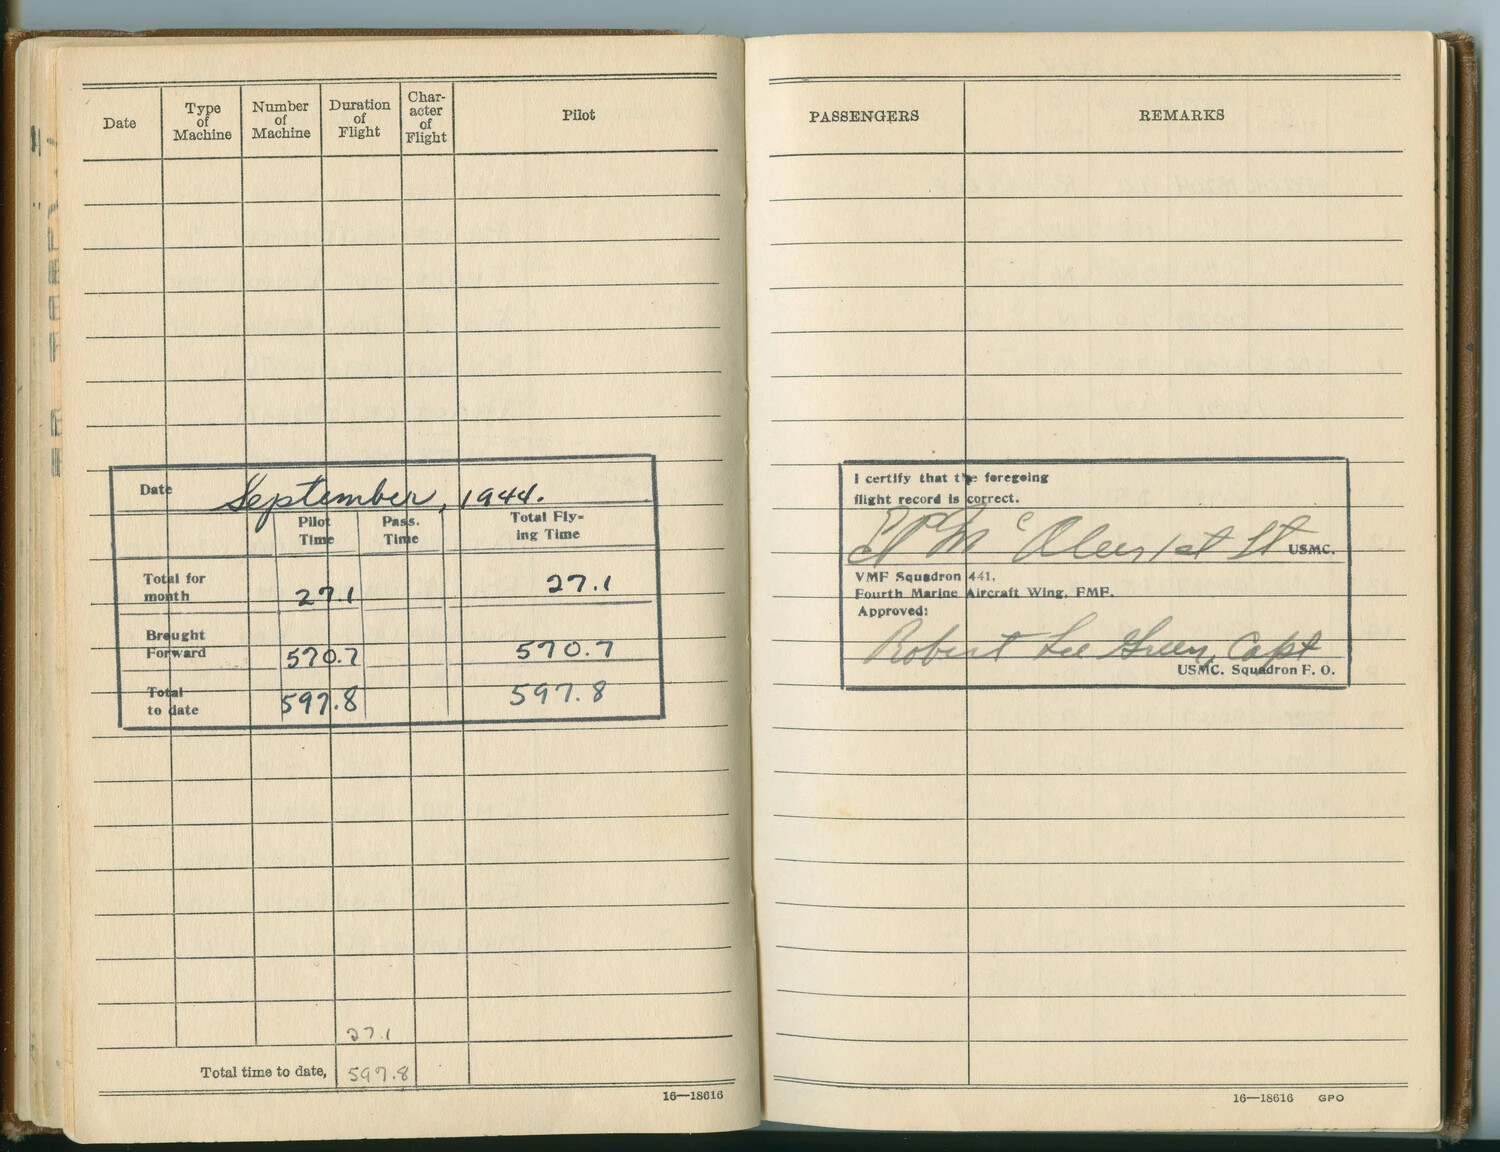 Date
Type of Machine
Number of Machine
Duration of Flight
Character of Flight
Pilot
Date September, 1944.
Pilot Time
Pass. Time
Total Flying Time
Total for month 27.1 27.1
Brought Forward 570.7 570.7
Total to date 597.8 597.8
27.1
Total time to date, 597.8
16—18616
PASSENGERS REMARKS
I certify that the foregoing
flight record is correct.
1st Lt USMC.
VMF Squadron 441,
Fourth Marine Aircraft Wing, FMF.
Approved:
Robert Lee Green, Capt
USMC. Squadron F. O.
16—18616 GPO